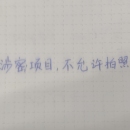 涉密项目,不允许拍照